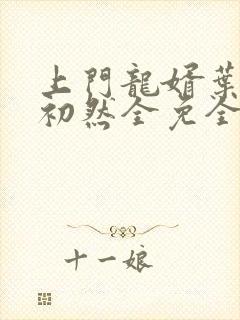 上門龍婿葉
初然全免全
十一娘